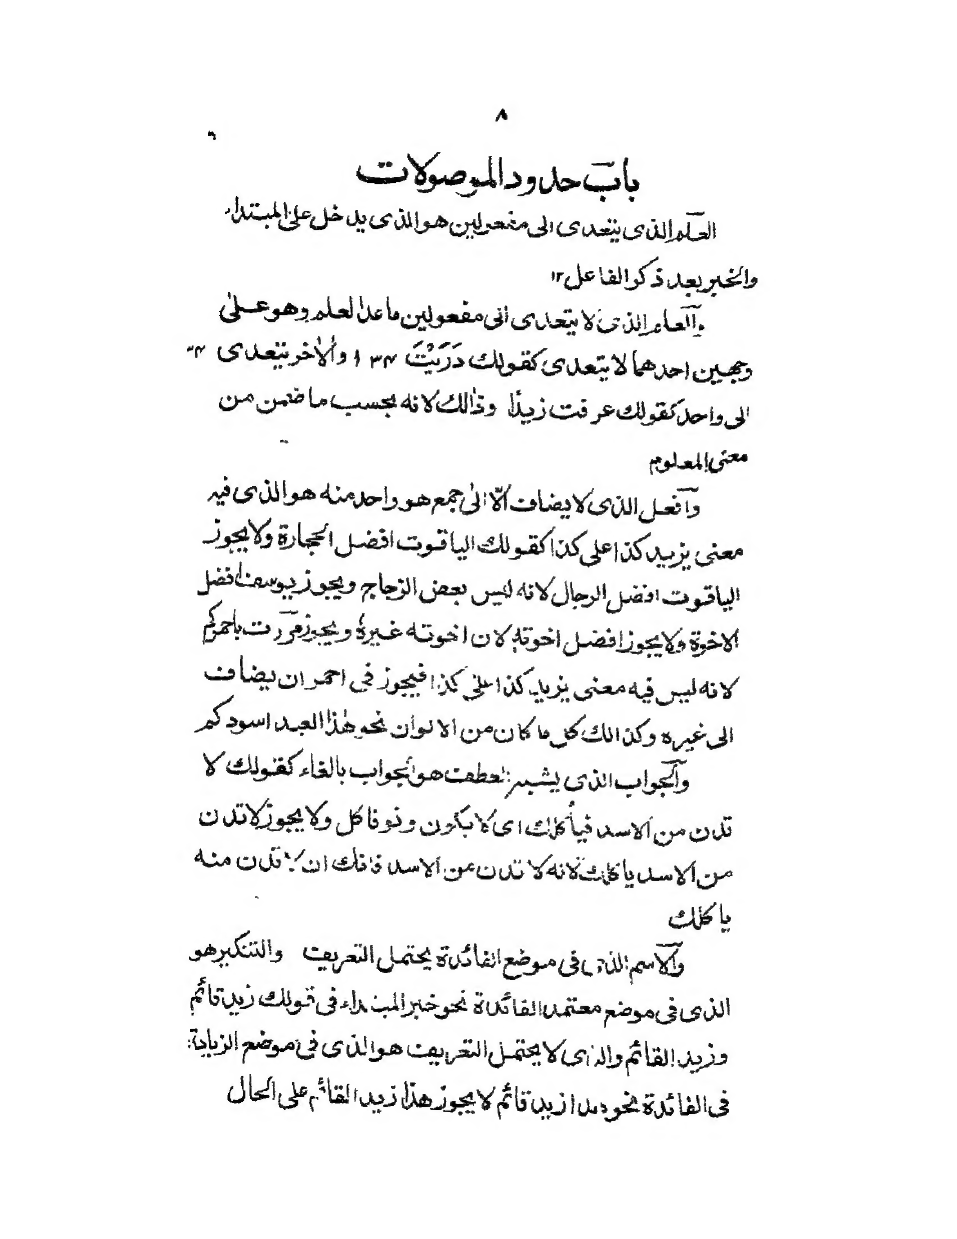 ٨
باب حدود الموصولات
العلم الذى يتعدى الى مفعولين هو الذى يدخل على المبتداء
والخبر بعد ذكر الفاعل ١٢
والعلم الذى لا يتعدى الى مفعولين ماعدا لعلم وهو على
وجهين احدهما لا يتعدى كقولك دَرَيْتُ والاٰخر يتعدى
الى واحد كقولك عرفت زيدًا وذالك لانه بحسب ما ضمن من
معنى المعلوم
وآفعل الذى لا يضاف الّا الىٰ جمع هو واحد منه هو الذى فيه
معنى يزيد كذا على كذا كقولك الياقوت افضل الحجارة ولا يجوز
الياقوت افضل الرجال لانه ليس بعض الزجاج ويجوز يوسف افضل
الاخوة ولا يجوز افضل اخوته لان اخوته غيره ويجوز مررت باحمركم
لانه ليس فيه معنى يزيد كذا على كذا فيجوز فى احمر ان يضاف
الى غيره وكذالك كل ما كان من الالوان نحو هٰذا العبد اسودكم
والجواب الذى يشبه العطف هو الجواب بالفاء كقولك لا
تدن من الاسد فيأكلك اى لا يكون دنو فاكل ولا يجوز لا تدن
من الاسد ياكلك لانه لا تدن من الاسد فانك ان لا تدن منه
ياكلك
والاسم الذى فى موضع الفائدة يحتمل التعريف والتنكير هو
الذى فى موضع معتمد الفائدة نحو خبر المبتداء فى قولك زيد قائم
وزيد القائم والذى لا يحتمل التعريف هو الذى فى موضع الزيادة
فى الفائدة نحو هذا زيد قائم لا يجوز هذا زيد القائم على الحال